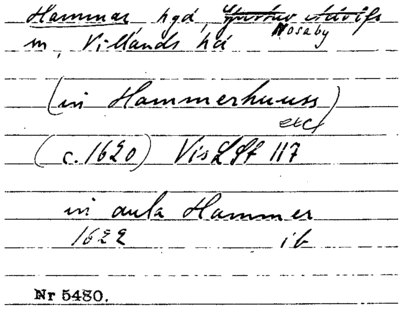 Hammar hgd, Gustav Adolfs
Nosaby
sn, Villands hd
(in Hammerhuuss)
exc
(c. 1620) Vis Lff 117
in aula Hammer
1622 ib
Nr 5480.